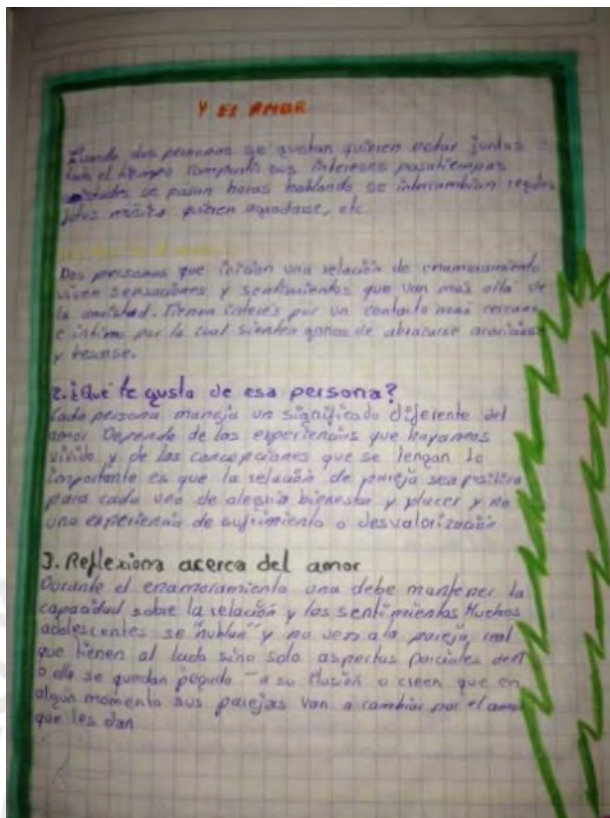 Y EL AMOR
Cuando dos personas se gustan quieren estar juntas
todo el tiempo compartir sus intereses pasatiempos
amistades se pasan horas hablando se intercambian regalos
fotos música quieren agradarse, etc
Dos personas que inician una relación de enamoramiento
viven sensaciones y sentimientos que van mas alla de
la amistad. Tienen interés por un contacto mas cercano
e intimo por lo cual sienten ganas de abrazarse acariciarse
y besarse.
2. ¿Qué te gusta de esa persona?
Cada persona maneja un significado diferente del
amor Depende de las experiencias que hayamos
vivido y de las concepciones que se tengan lo
importante es que la relación de pareja sea positiva
para cada uno de alegria bienestar y placer y no
una experiencia de sufrimiento o desvalorización
3. Reflexiona acerca del amor
Durante el enamoramiento una debe mantener la
capacidad sobre la relación y los sentimientos Muchos
adolescentes se "nublan" y no ven a la pareja real
que tienen al lado sino solo aspectos parciales de el
o ella se quedan pegado - a su ilusión o creen que en
algun momento sus parejas van a cambiar por el amor
que les dan